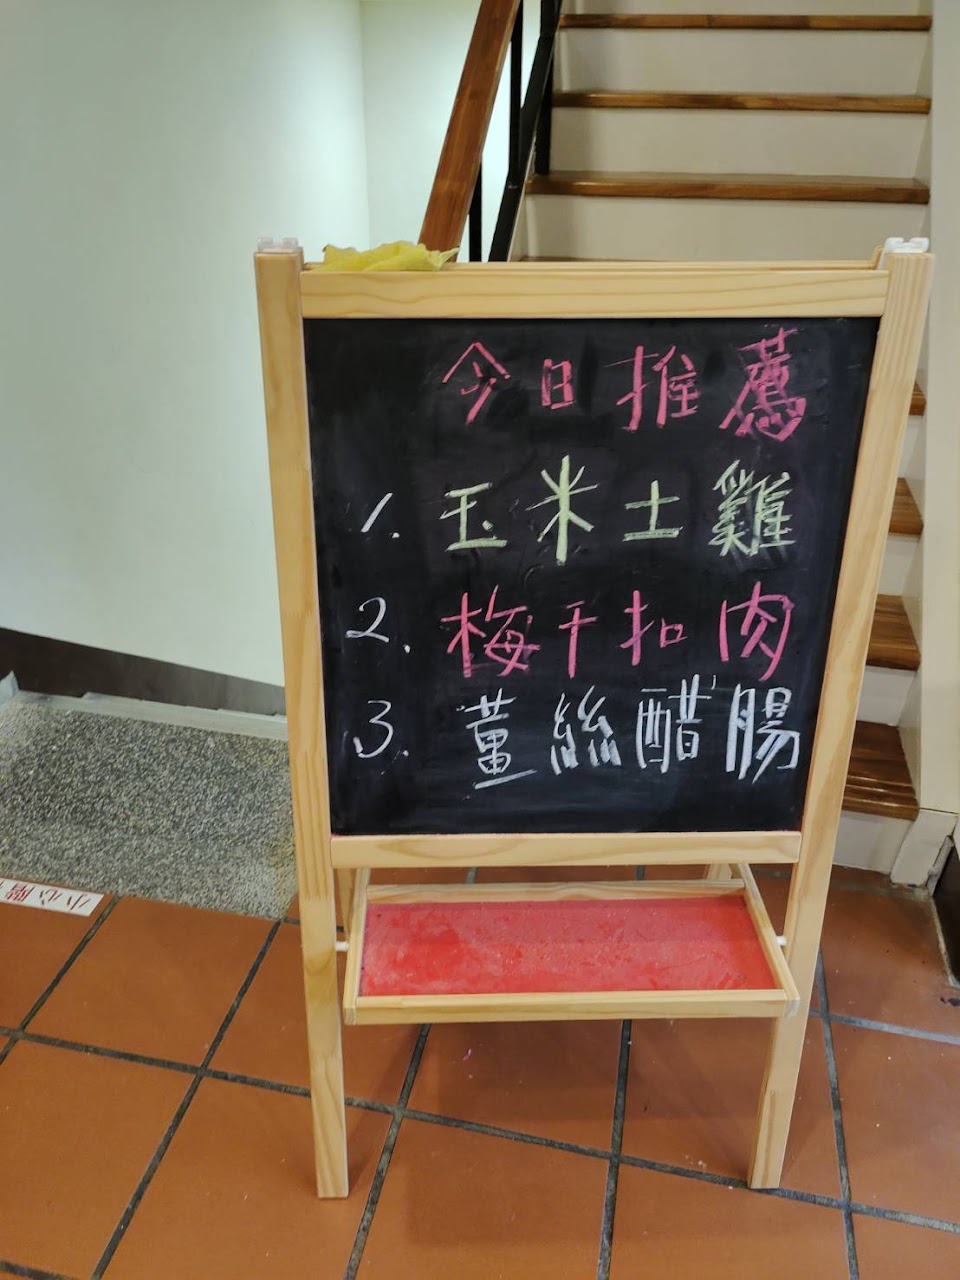 今日推薦
1. 玉米土雞
2. 梅干扣肉
3. 薑絲醋腸
小心階